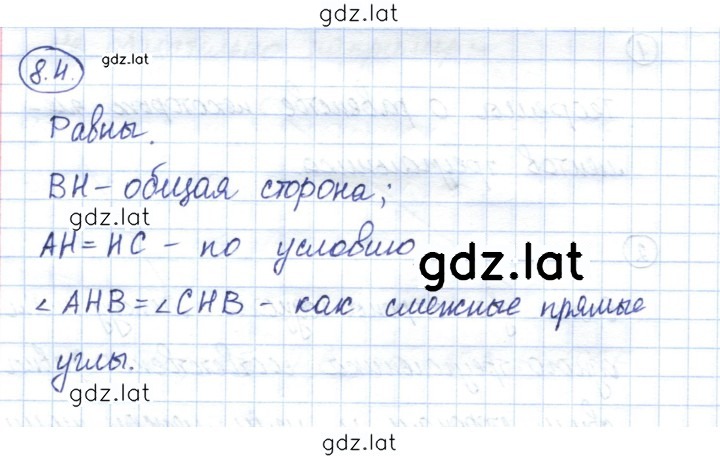 gdz.lat
8.4.
gdz.lat
Равны.
BH - общая сторона;
gdz.lat
AH = HC - по условию
gdz.lat
∠AHB = ∠CHB - как смежные прямые
углы.
gdz.lat
gdz.lat